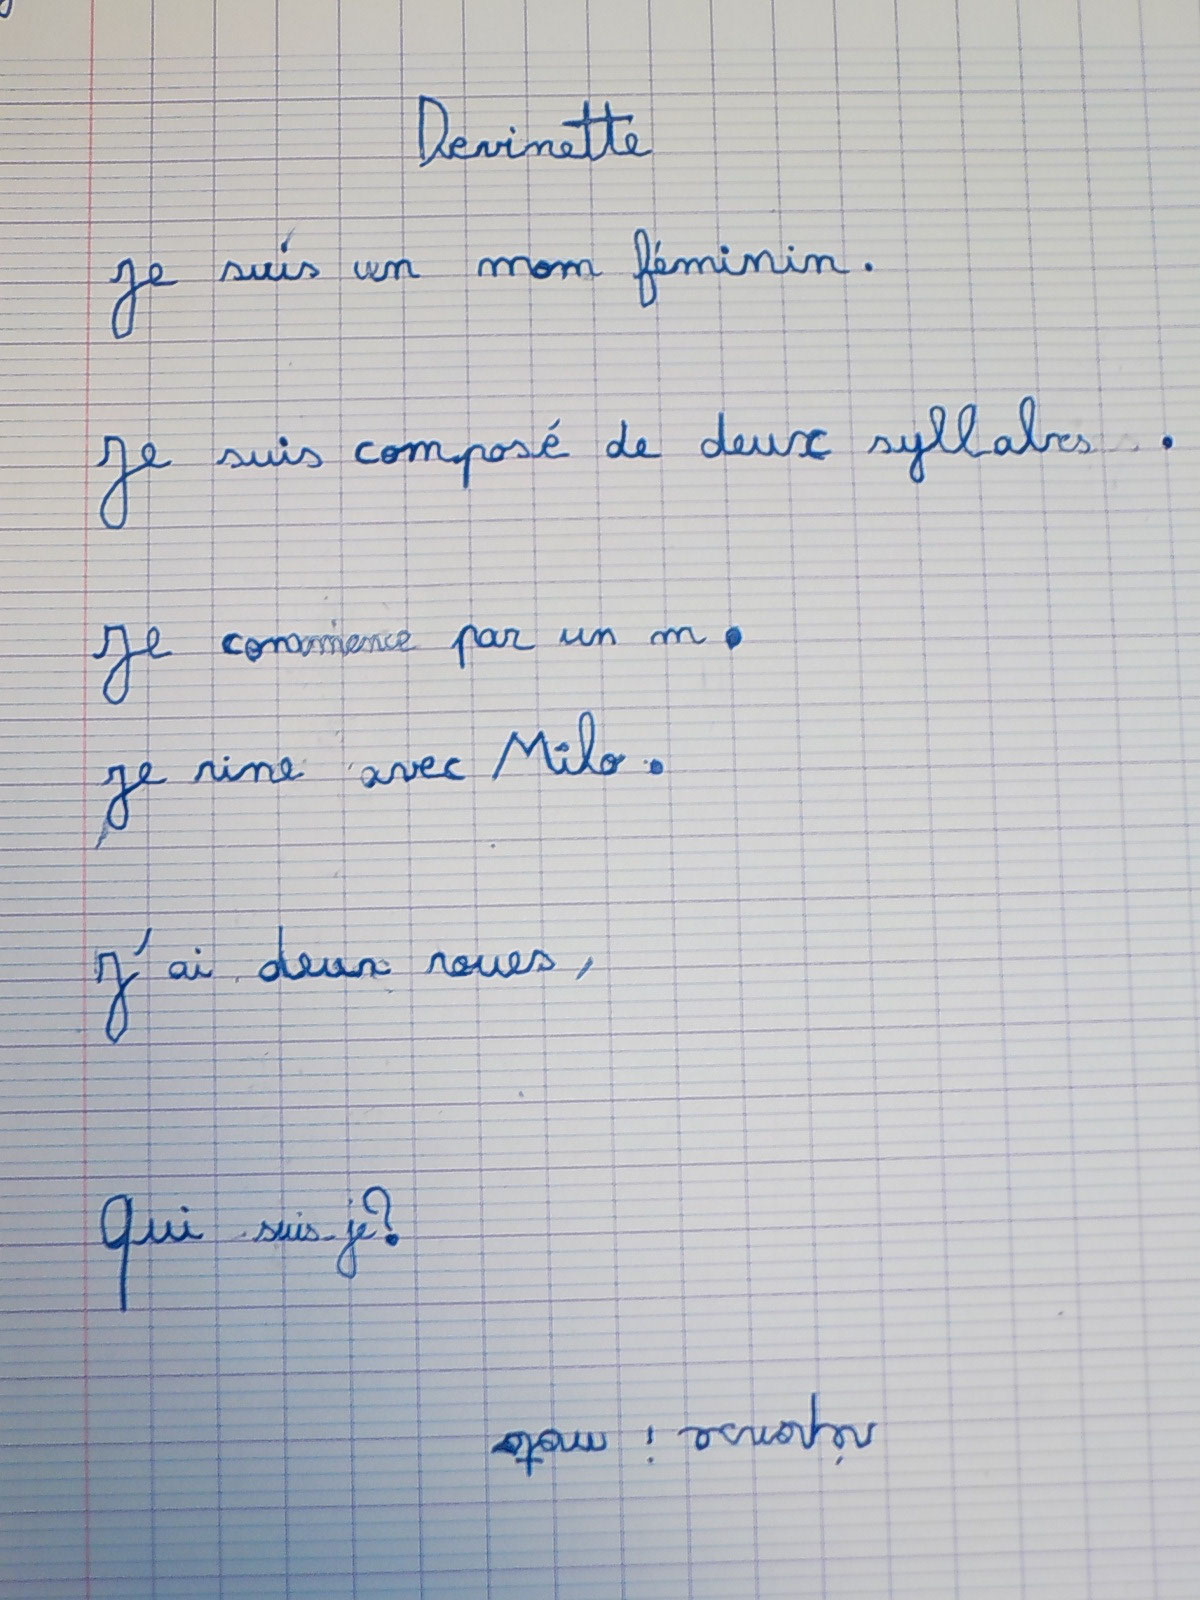 Devinette
je suis un nom féminin.
Je suis composé de deux syllabes.
Je commence par un m.
je rime avec Milo.
J'ai deux roues,
Qui suis-je?
réponse : moto